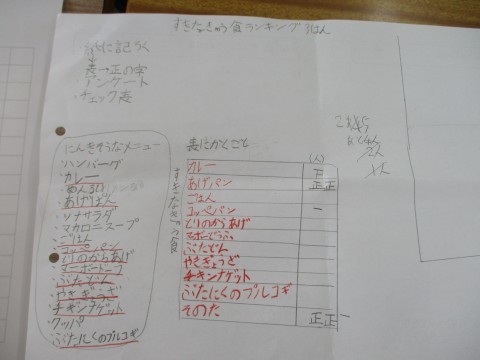 すきなきゅう食ランキング 3ぱん
紙に記ろく
表→正の字
アンケート
チェック表
にんきそうなメニュー
・ハンバーグ
・カレー
・あげぱん
・ツナサラダ
・マカロニスープ
・ごはん
・とりのからあげ
・マーボートーフ
・ぶたどん
・やきぎょうざ
・チキンナゲット
・クッパ
・ぶたにくのプルコギ
表にかくこと
すきなきゅう食
(人)
カレー 下
あげパン 正正
ごはん
コッペパン 一
とりのからあげ
マーボーどうふ
ぶたどん
やきぎょうざ
チキンナゲット
ぶたにくのプルコギ
そのた 正正一